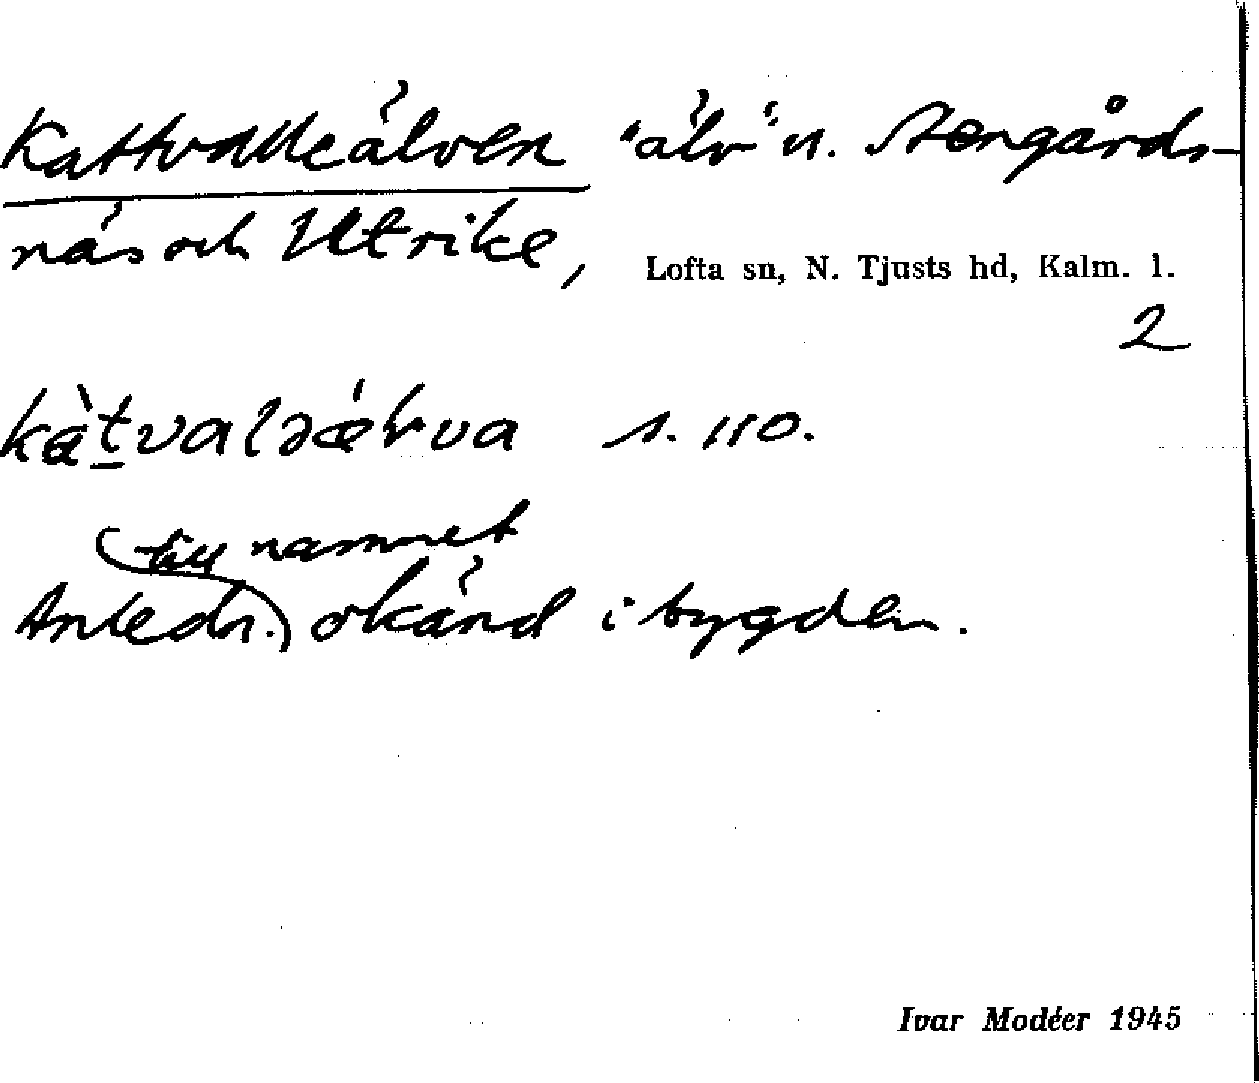 Kattvalleälven "älv" n. Stengårds-
näs och Utrike,
Lofta sn, N. Tjusts hd, Kalm. l.
2
kàt̲valəǽlva s. 110.
till namnet
Anledn. okänd i bygden.
Ivar Modéer 1945